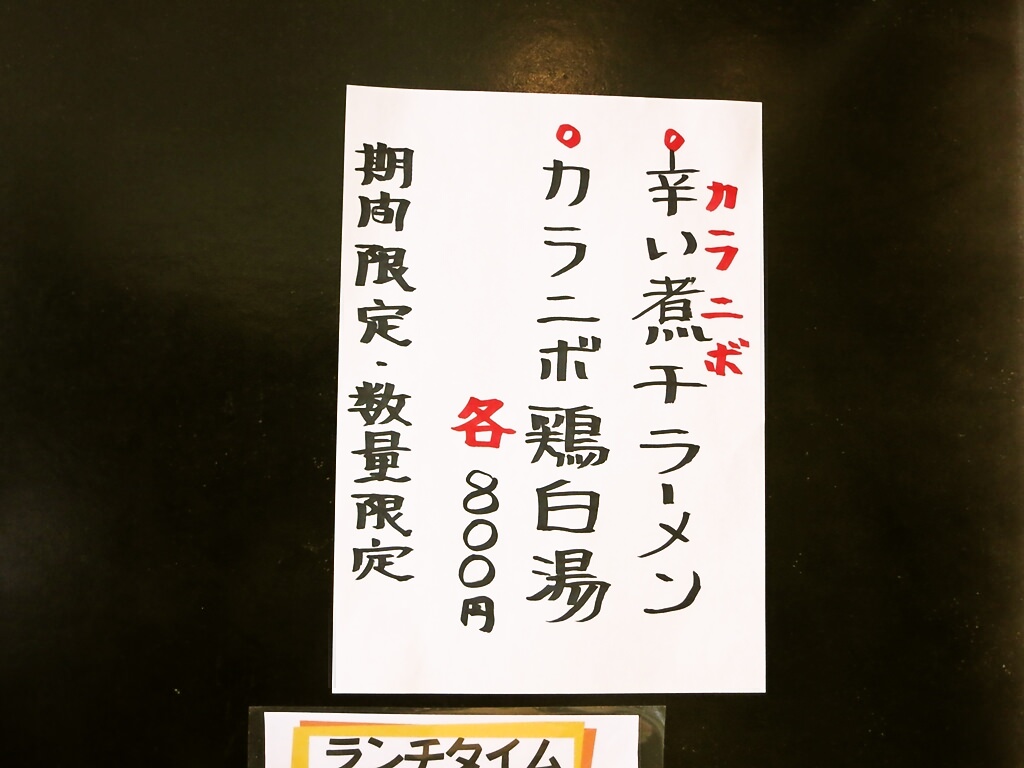 カラニボ
辛い煮干ラーメン
カラニボ鶏白湯
各800円
期間限定・数量限定
ランチタイム